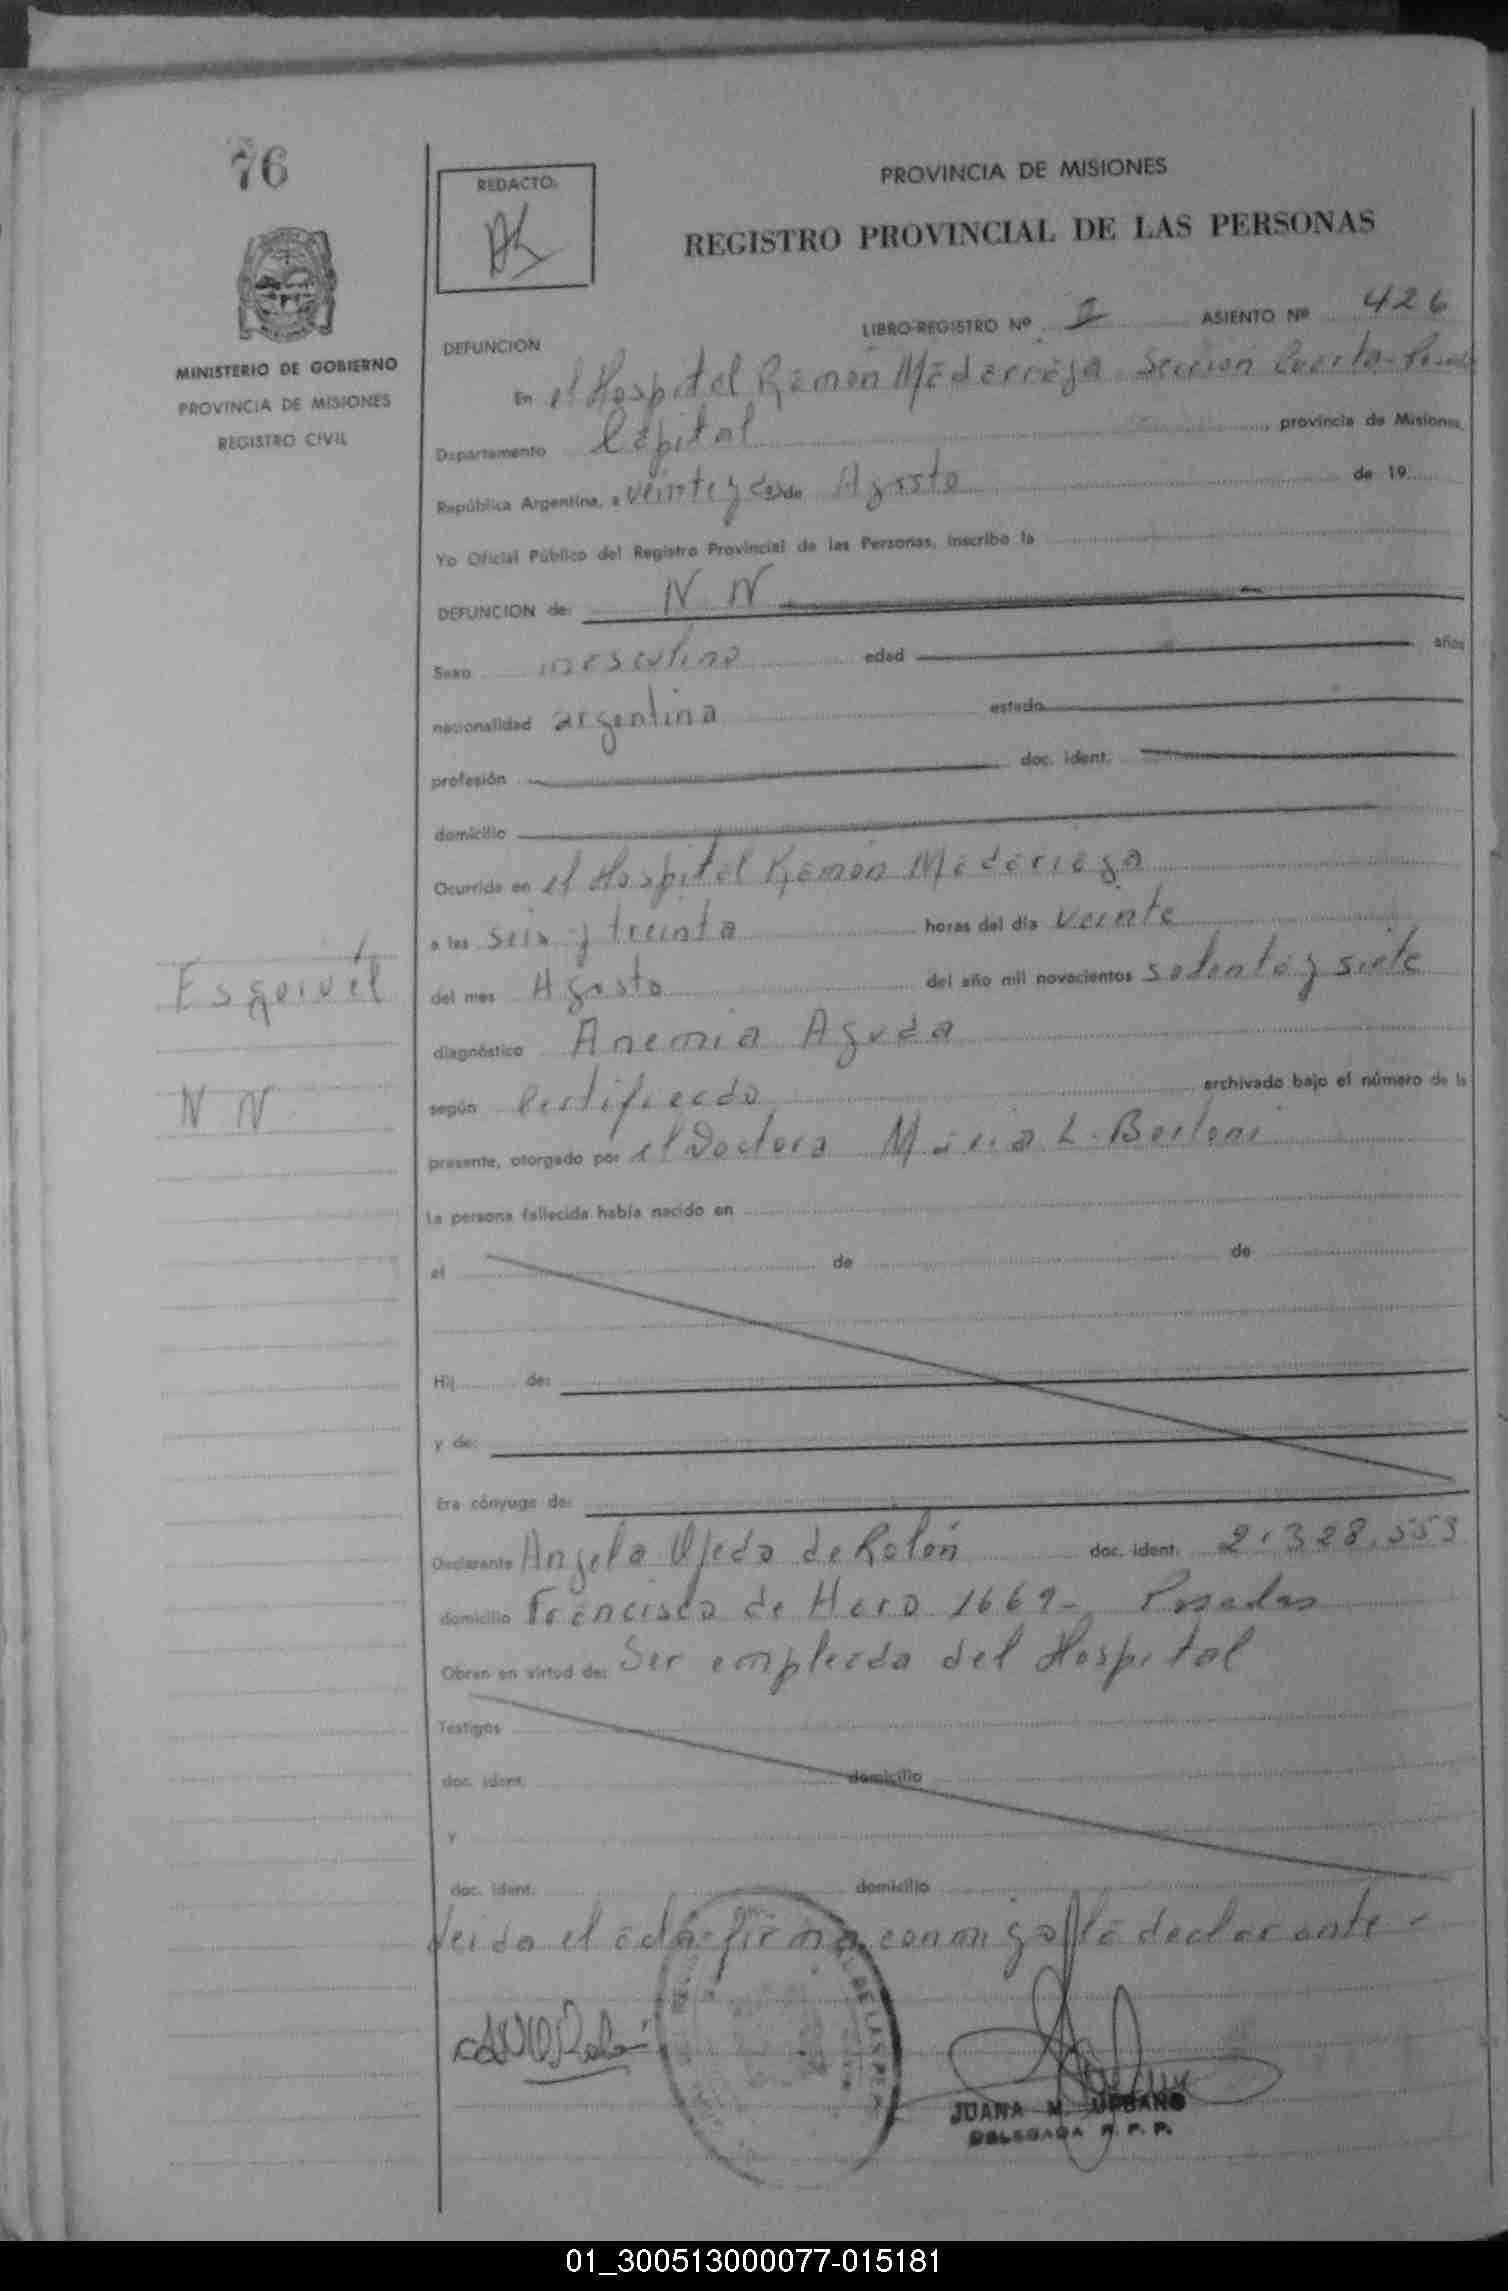 76
REDACTO:
PROVINCIA DE MISIONES
REGISTRO PROVINCIAL DE LAS PERSONAS
MINISTERIO DE GOBIERNO
PROVINCIA DE MISIONES
REGISTRO CIVIL
LIBRO-REGISTRO Nº I ASIENTO Nº 426
DEFUNCION
En el Hospital Ramón Madariaga Sección Cuarta-Posadas
Departamento Capital, provincia de Misiones,
República Argentina, a veinte y dos de Agosto de 19
Yo Oficial Público del Registro Provincial de las Personas, inscribo la
DEFUNCION de: N N
Sexo masculino edad años
nacionalidad argentina estado
profesión doc. ident.
domicilio
Ocurrida en el Hospital Ramón Madariaga
a las seis y treinta horas del día veinte
Esquivel
del mes Agosto del año mil novecientos setenta y siete
diagnóstico Anemia Aguda
N N
según Certificado archivado bajo el número de la
presente, otorgado por el Doctora María L. Bertoni
La persona fallecida había nacido en
el de de
Hij de:
y de:
Era cónyuge de:
Declarante Angela Ojeda de Rolón doc. ident. 2.328.553
domicilio Francisco de Haro 1669- Posadas
Obran en virtud de: Ser empleada del Hospital
Testigos
doc. ident. domicilio
y
doc. ident. domicilio
Leida el acta firma conmigo la declarante-
JUANA M. URBANO
DELEGADA R. P. P.
01_300513000077-015181